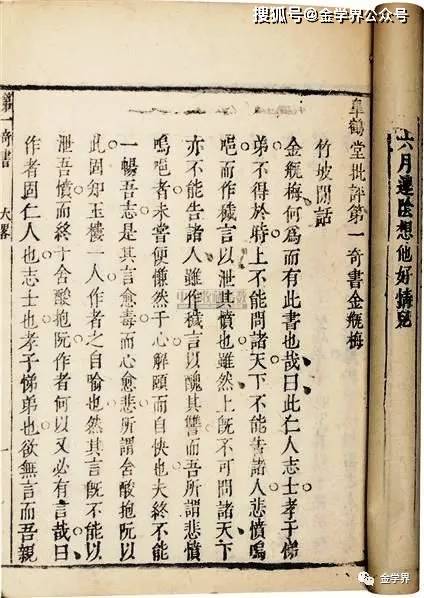 搜狐号@金学界公众号
六月連陰想他好情兒
皐鶴堂批評第一奇書金瓶梅
竹坡閒話
金瓶梅何為而有此書也哉曰此仁人志士孝子悌
弟不得於時上不能問諸天下不能告諸人悲憤嗚
唈而作穢言以泄其憤也雖然上既不可問諸天下
亦不能告諸人雖作穢言以醜其讐而吾所謂悲憤
嗚唈者未嘗便慊然于心解頤而自快也夫終不能
一暢吾志是其言愈毒而心愈悲所謂含酸抱阮以
此固知玉樓一人作者之自喻也然其言既不能以
泄吾憤而終于含酸抱阮作者何以又必有言哉曰
作者固仁人也志士也孝子悌弟也欲無言而吾親
第一奇書 大畧 一
金学界